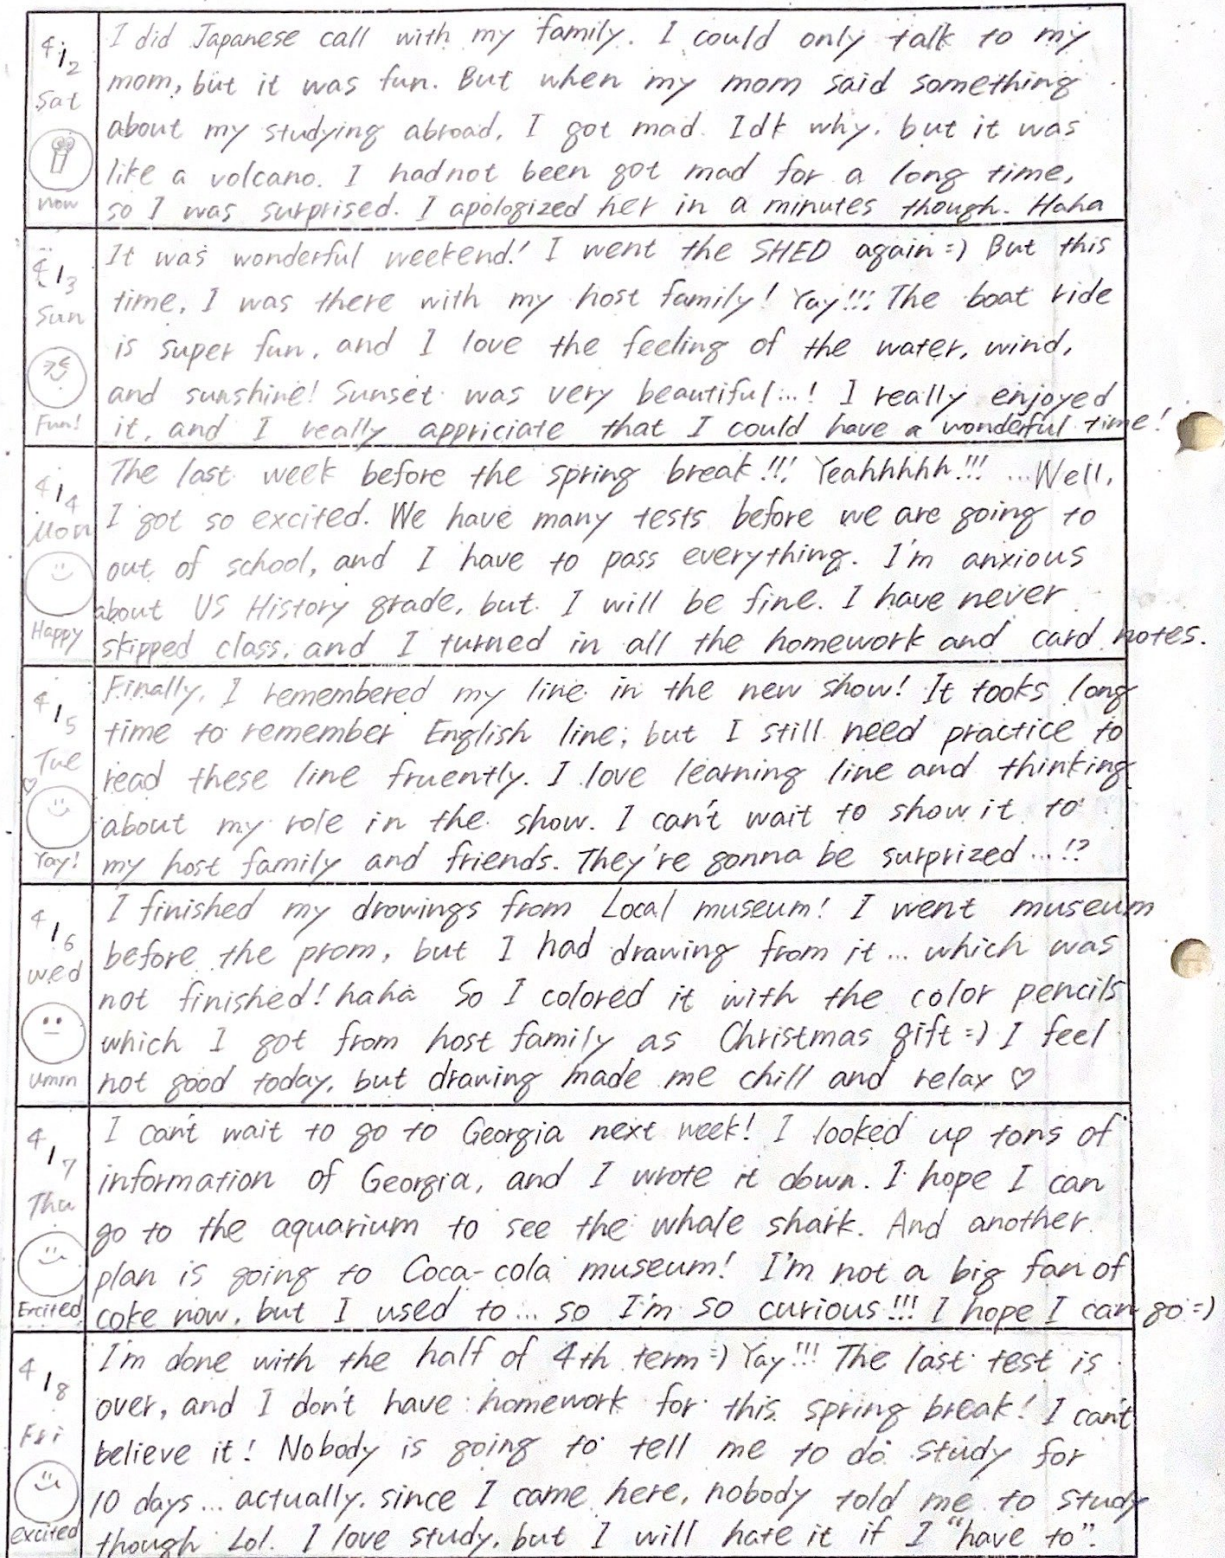 4/2
Sat
wow
I did Japanese call with my family. I could only talk to my
mom, but it was fun. But when my mom said something
about my studying abroad, I got mad. Idk why, but it was
like a volcano. I had not been got mad for a long time,
so I was surprised. I apologized her in a minutes though. Haha
4/3
Sun
Fun!
It was wonderful weekend! I went the SHED again =) But this
time, I was there with my host family! Yay!!! The boat ride
is super fun, and I love the feeling of the water, wind,
and sunshine! Sunset was very beautiful...! I really enjoyed
it, and I really appriciate that I could have a wonderful time!
4/4
Mon
Happy
The last week before the spring break!!! Yeahhhhh!!! ...Well,
I got so excited. We have many tests before we are going to
out of school, and I have to pass everything. I'm anxious
about US History grade, but I will be fine. I have never
skipped class, and I turned in all the homework and card notes.
4/5
Tue
♡
Yay!
Finally, I remembered my line in the new show! It tooks long
time to remember English line, but I still need practice to
read these line fruently. I love learning line and thinking
about my role in the show. I can't wait to show it to
my host family and friends. They're gonna be surprized...!?
4/6
Wed
umm
I finished my drowings from Local museum! I went museum
before the prom, but I had drawing from it... which was
not finished! haha So I colored it with the color pencils
which I got from host family as Christmas gift =) I feel
not good today, but drawing made me chill and relax ♡
4/7
Thu
Excited
I can't wait to go to Georgia next week! I looked up tons of
information of Georgia, and I wrote it down. I hope I can
go to the aquarium to see the whale shark. And another
plan is going to Coca-cola museum! I'm not a big fan of
coke now, but I used to... so I'm so curious!!! I hope I can go =)
4/8
Fri
excited
I'm done with the half of 4th term =) Yay!!! The last test is
over, and I don't have homework for this spring break! I can't
believe it! Nobody is going to tell me to do study for
10 days... actually, since I came here, nobody told me to study
though Lol. I love study, but I will hate it if I "have to".